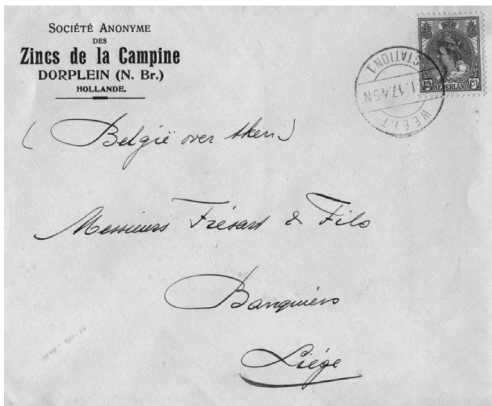 SOCIÉTÉ ANONYME
DES
Zincs de la Campine
DORPLEIN (N. Br.)
HOLLANDE.
WEERT STATION 1
1.17.4 5N
NEDERLAND
(België over Aken)
Messieurs Frésart & Fils
Banquiers
Liége